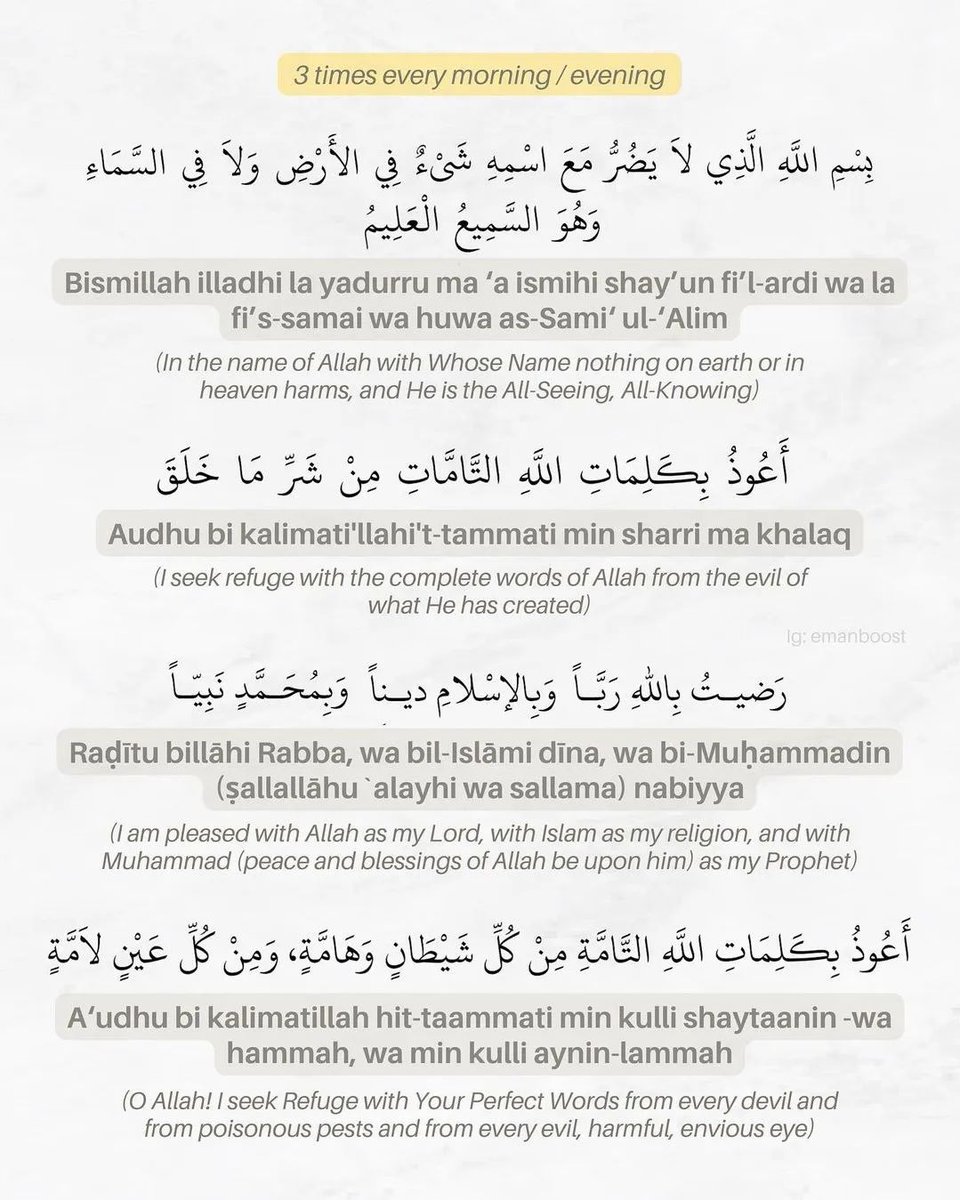 3 times every morning / evening
بِسْمِ اللَّهِ الَّذِي لاَ يَضُرُّ مَعَ اسْمِهِ شَىْءٌ فِي الأَرْضِ وَلاَ فِي السَّمَاءِ
وَهُوَ السَّمِيعُ الْعَلِيمُ
Bismillah illadhi la yadurru ma ‘a ismihi shay‘un fi’l-ardi wa la
fi’s-samai wa huwa as-Sami‘ ul-‘Alim
(In the name of Allah with Whose Name nothing on earth or in
heaven harms, and He is the All-Seeing, All-Knowing)
أَعُوذُ بِكَلِمَاتِ اللَّهِ التَّامَّاتِ مِنْ شَرِّ مَا خَلَقَ
Audhu bi kalimati'llahi't-tammati min sharri ma khalaq
(I seek refuge with the complete words of Allah from the evil of
what He has created)
Ig: emanboost
رَضيـتُ بِاللهِ رَبَّـاً وَبِالإسْلامِ ديـناً وَبِمُحَـمَّدٍ نَبِيّـاً
Raḍītu billāhi Rabba, wa bil-Islāmi dīna, wa bi-Muḥammadin
(ṣallallāhu `alayhi wa sallama) nabiyya
(I am pleased with Allah as my Lord, with Islam as my religion, and with
Muhammad (peace and blessings of Allah be upon him) as my Prophet)
أَعُوذُ بِكَلِمَاتِ اللَّهِ التَّامَّةِ مِنْ كُلِّ شَيْطَانٍ وَهَامَّةٍ، وَمِنْ كُلِّ عَيْنٍ لاَمَّةٍ
A‘udhu bi kalimatillah hit-taammati min kulli shaytaanin -wa
hammah, wa min kulli aynin-lammah
(O Allah! I seek Refuge with Your Perfect Words from every devil and
from poisonous pests and from every evil, harmful, envious eye)